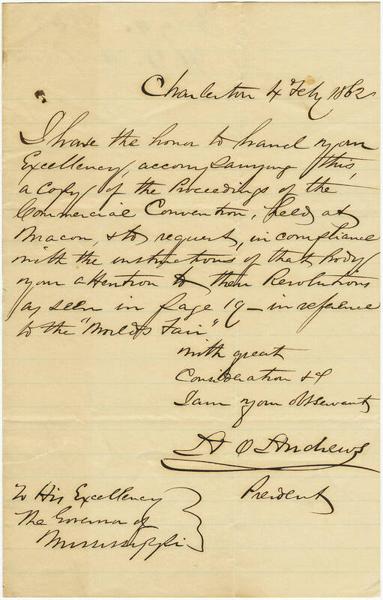 Charleston 4 Feby 1862
I have the honor to hand your
Excellency, accompanying this,
a Copy of the Proceedings of the
Commercial Convention, held at
Macon, & to request, in compliance
with the instructions of that body
your attention to their Resolutions
as seen in page 19 — in reference
to the "World's Fair"
with great
Consideration &c
I am your obt servant
A O Andrews
President
To His Excellency
The Governor of
Mississippi